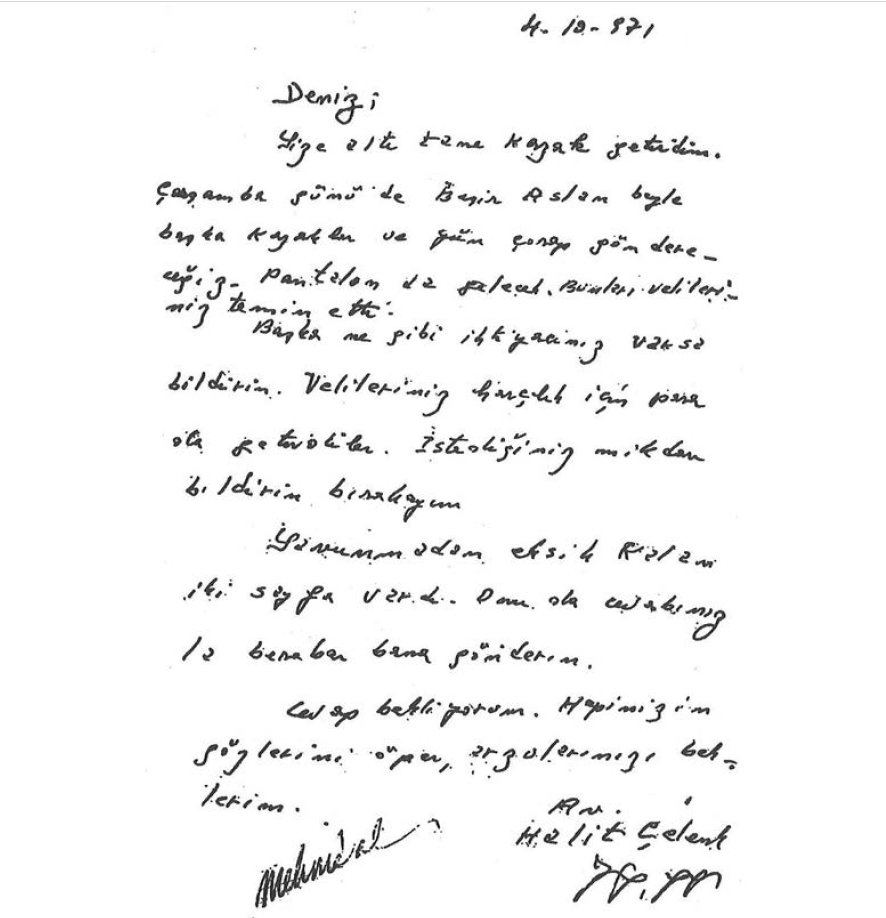 4-10-971
Denizi
Size altı tane kazak getirdim.
Çarşamba günü de Beşir Aslan beyle
başka kazaklar ve yün çorap göndere-
ceğiz. Pantalon da gelecek. Bunları velileri-
niz temin etti.
Başka ne gibi ihtiyacınız varsa
bildirin. Velileriniz harçlık için para
da getirdiler. İstediğiniz mikdarı
bildirin bırakayım
Savunmadan eksik kalan
iki sayfa vardı. Onu da cevabınız
la beraber bana gönderin.
Cevap bekliyorum. Hepinizin
gözlerini öper, arzularınızı bek-
lerim.
Av.
Halit Çelenk